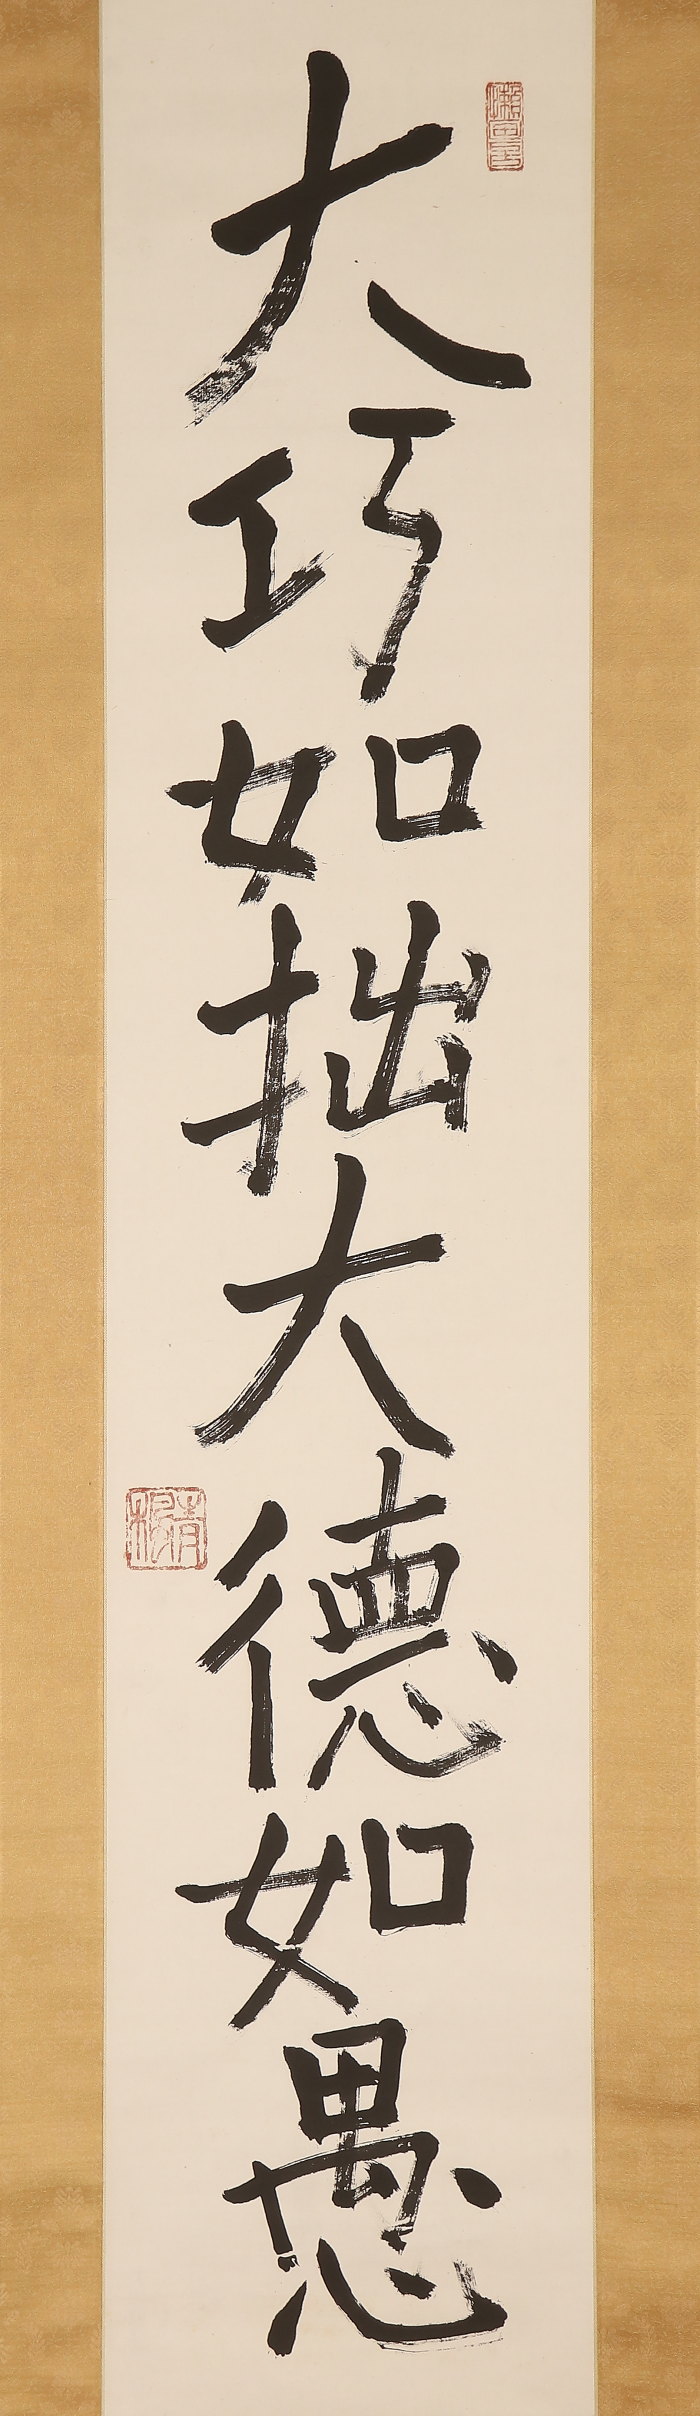 大巧如拙大德如愚